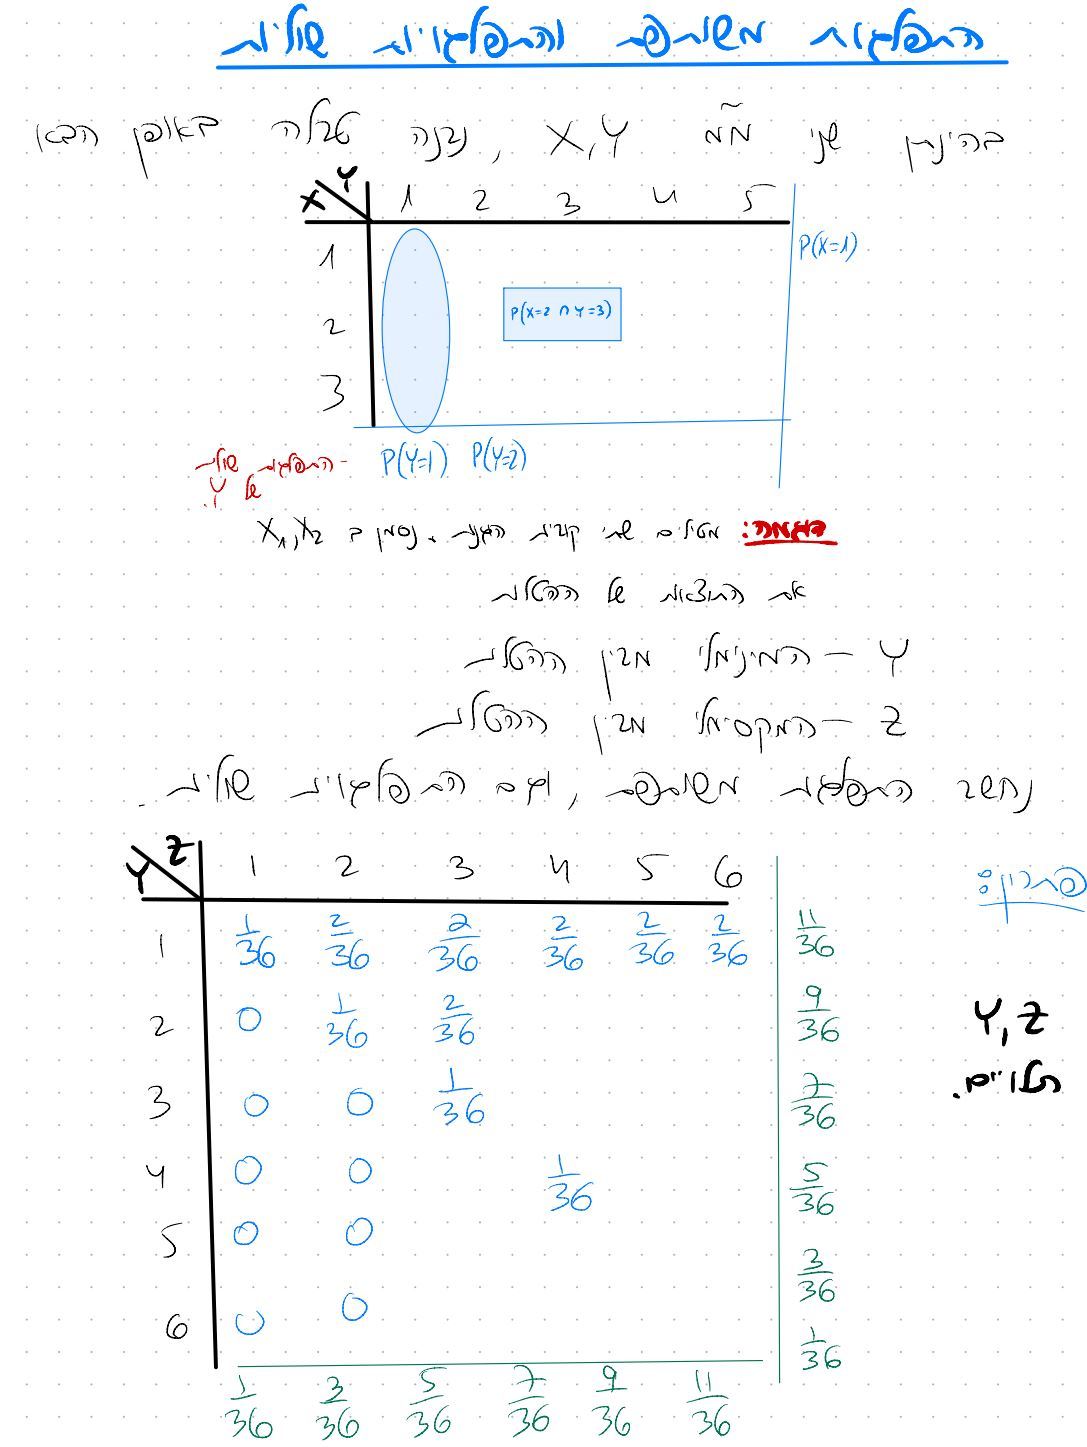 התפלגות משותפת והתפלגויות שוליות
בהינתן שני מ"מ X,Y, נבנה טבלה באופן הבא
X Y 1 2 3 4 5
1 P(X=1)
2 P(X=2 ∩ Y=3)
3
P(Y=1) P(Y=2)
- התפלגות שולית
של Y.
דוגמה: מטילים שתי קוביות הוגנות. נסמן ב X₁,X₂
את התוצאות של ההטלות
Y – המינימלי מבין ההטלות
Z – המקסימלי מבין ההטלות
נחשב התפלגות משותפת, וגם התפלגויות שוליות.
פתרון:
Y Z 1 2 3 4 5 6
1 1/36 2/36 2/36 2/36 2/36 2/36 11/36
2 0 1/36 2/36 9/36
3 0 0 1/36 7/36
4 0 0 1/36 5/36
5 0 0 3/36
6 0 0 1/36
1/36 3/36 5/36 7/36 9/36 11/36
Y,Z
תלויים.